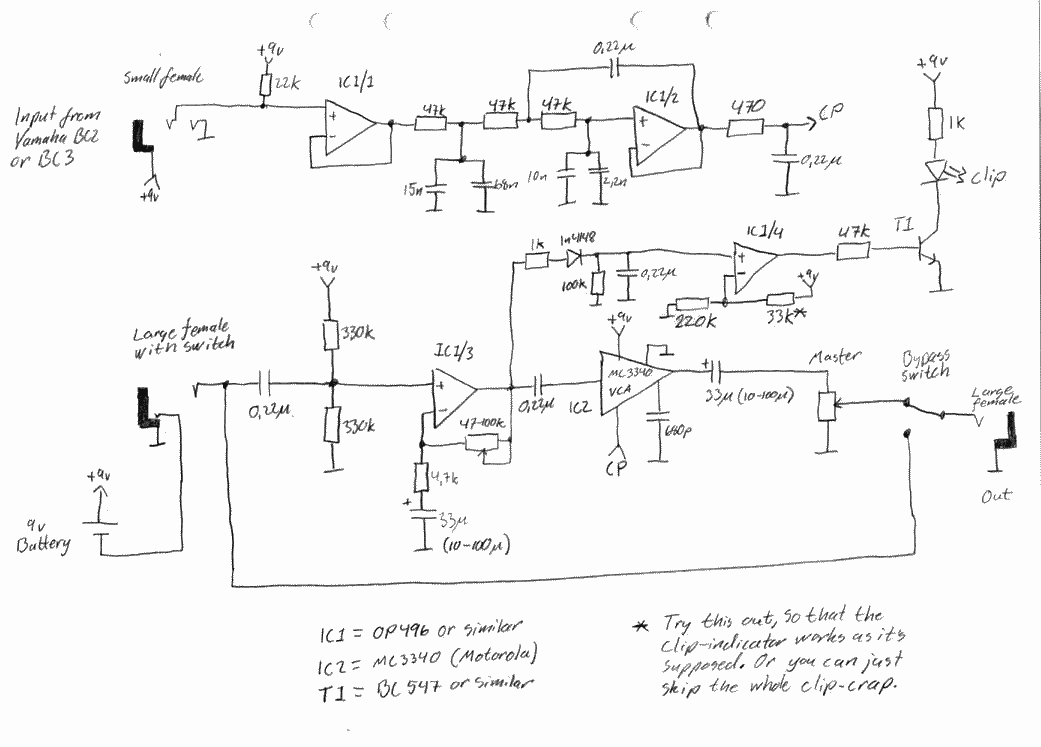 +9v
0,22µ
small female
22k
IC1/1
47k
47k
47k
IC1/2
470
CP
+9v
1K
Input from
Yamaha BC2
or BC3
+
-
+
-
0,22µ
clip
+9v
15n
68n
10n
2,2n
T1
1k
1n4148
IC1/4
47k
+
-
100k
0,22µ
+9v
220k
33k*
+9v
330k
Large female
with switch
IC1/3
+9v
MC3340
VCA
IC2
+
33µ (10-100µ)
Master
Bypass
switch
Large
female
+
-
0,22µ
330k
47-100k
0,22µ
680p
CP
4,7k
+
33µ
(10-100µ)
Out
+9v
9v
Battery
IC1 = OP496 or similar
IC2 = MC3340 (Motorola)
T1 = BC547 or similar
* Try this out, so that the
clip-indicator works as it's
supposed. Or you can just
skip the whole clip-crap.